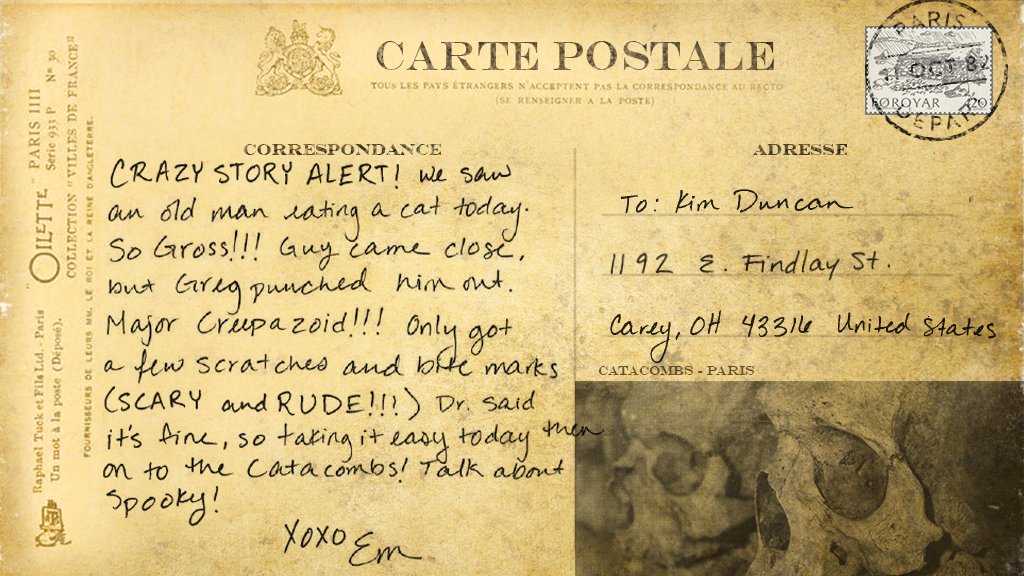 CARTE POSTALE
TOUS LES PAYS ÉTRANGERS N'ACCEPTENT PAS LA CORRESPONDANCE AU RECTO
(SE RENSEIGNER A LA POSTE)
PARIS
11 OCT 82
DEPART
FØROYAR 20
OILETTE" PARIS IIII
Serie 933 P No 30
COLLECTION "VILLES DE FRANCE"
Raphael Tuck et Fils Ltd. Paris
Un mot à la poste (Déposé).
FOURNISSEURS DE LEURS MM. LE ROI ET LA REINE D'ANGLETERRE.
CORRESPONDANCE
CRAZY STORY ALERT! We saw
an old man eating a cat today.
So Gross!!! Guy came close,
but Greg punched him out.
Major Creepazoid!!! Only got
a few scratches and bite marks
(SCARY and RUDE!!!) Dr. said
it's fine, so taking it easy today then
on to the Catacombs! Talk about
spooky!
XOXO Em
ADRESSE
To: Kim Duncan
1192 E. Findlay St.
Carey, OH 43316 United States
CATACOMBS - PARIS